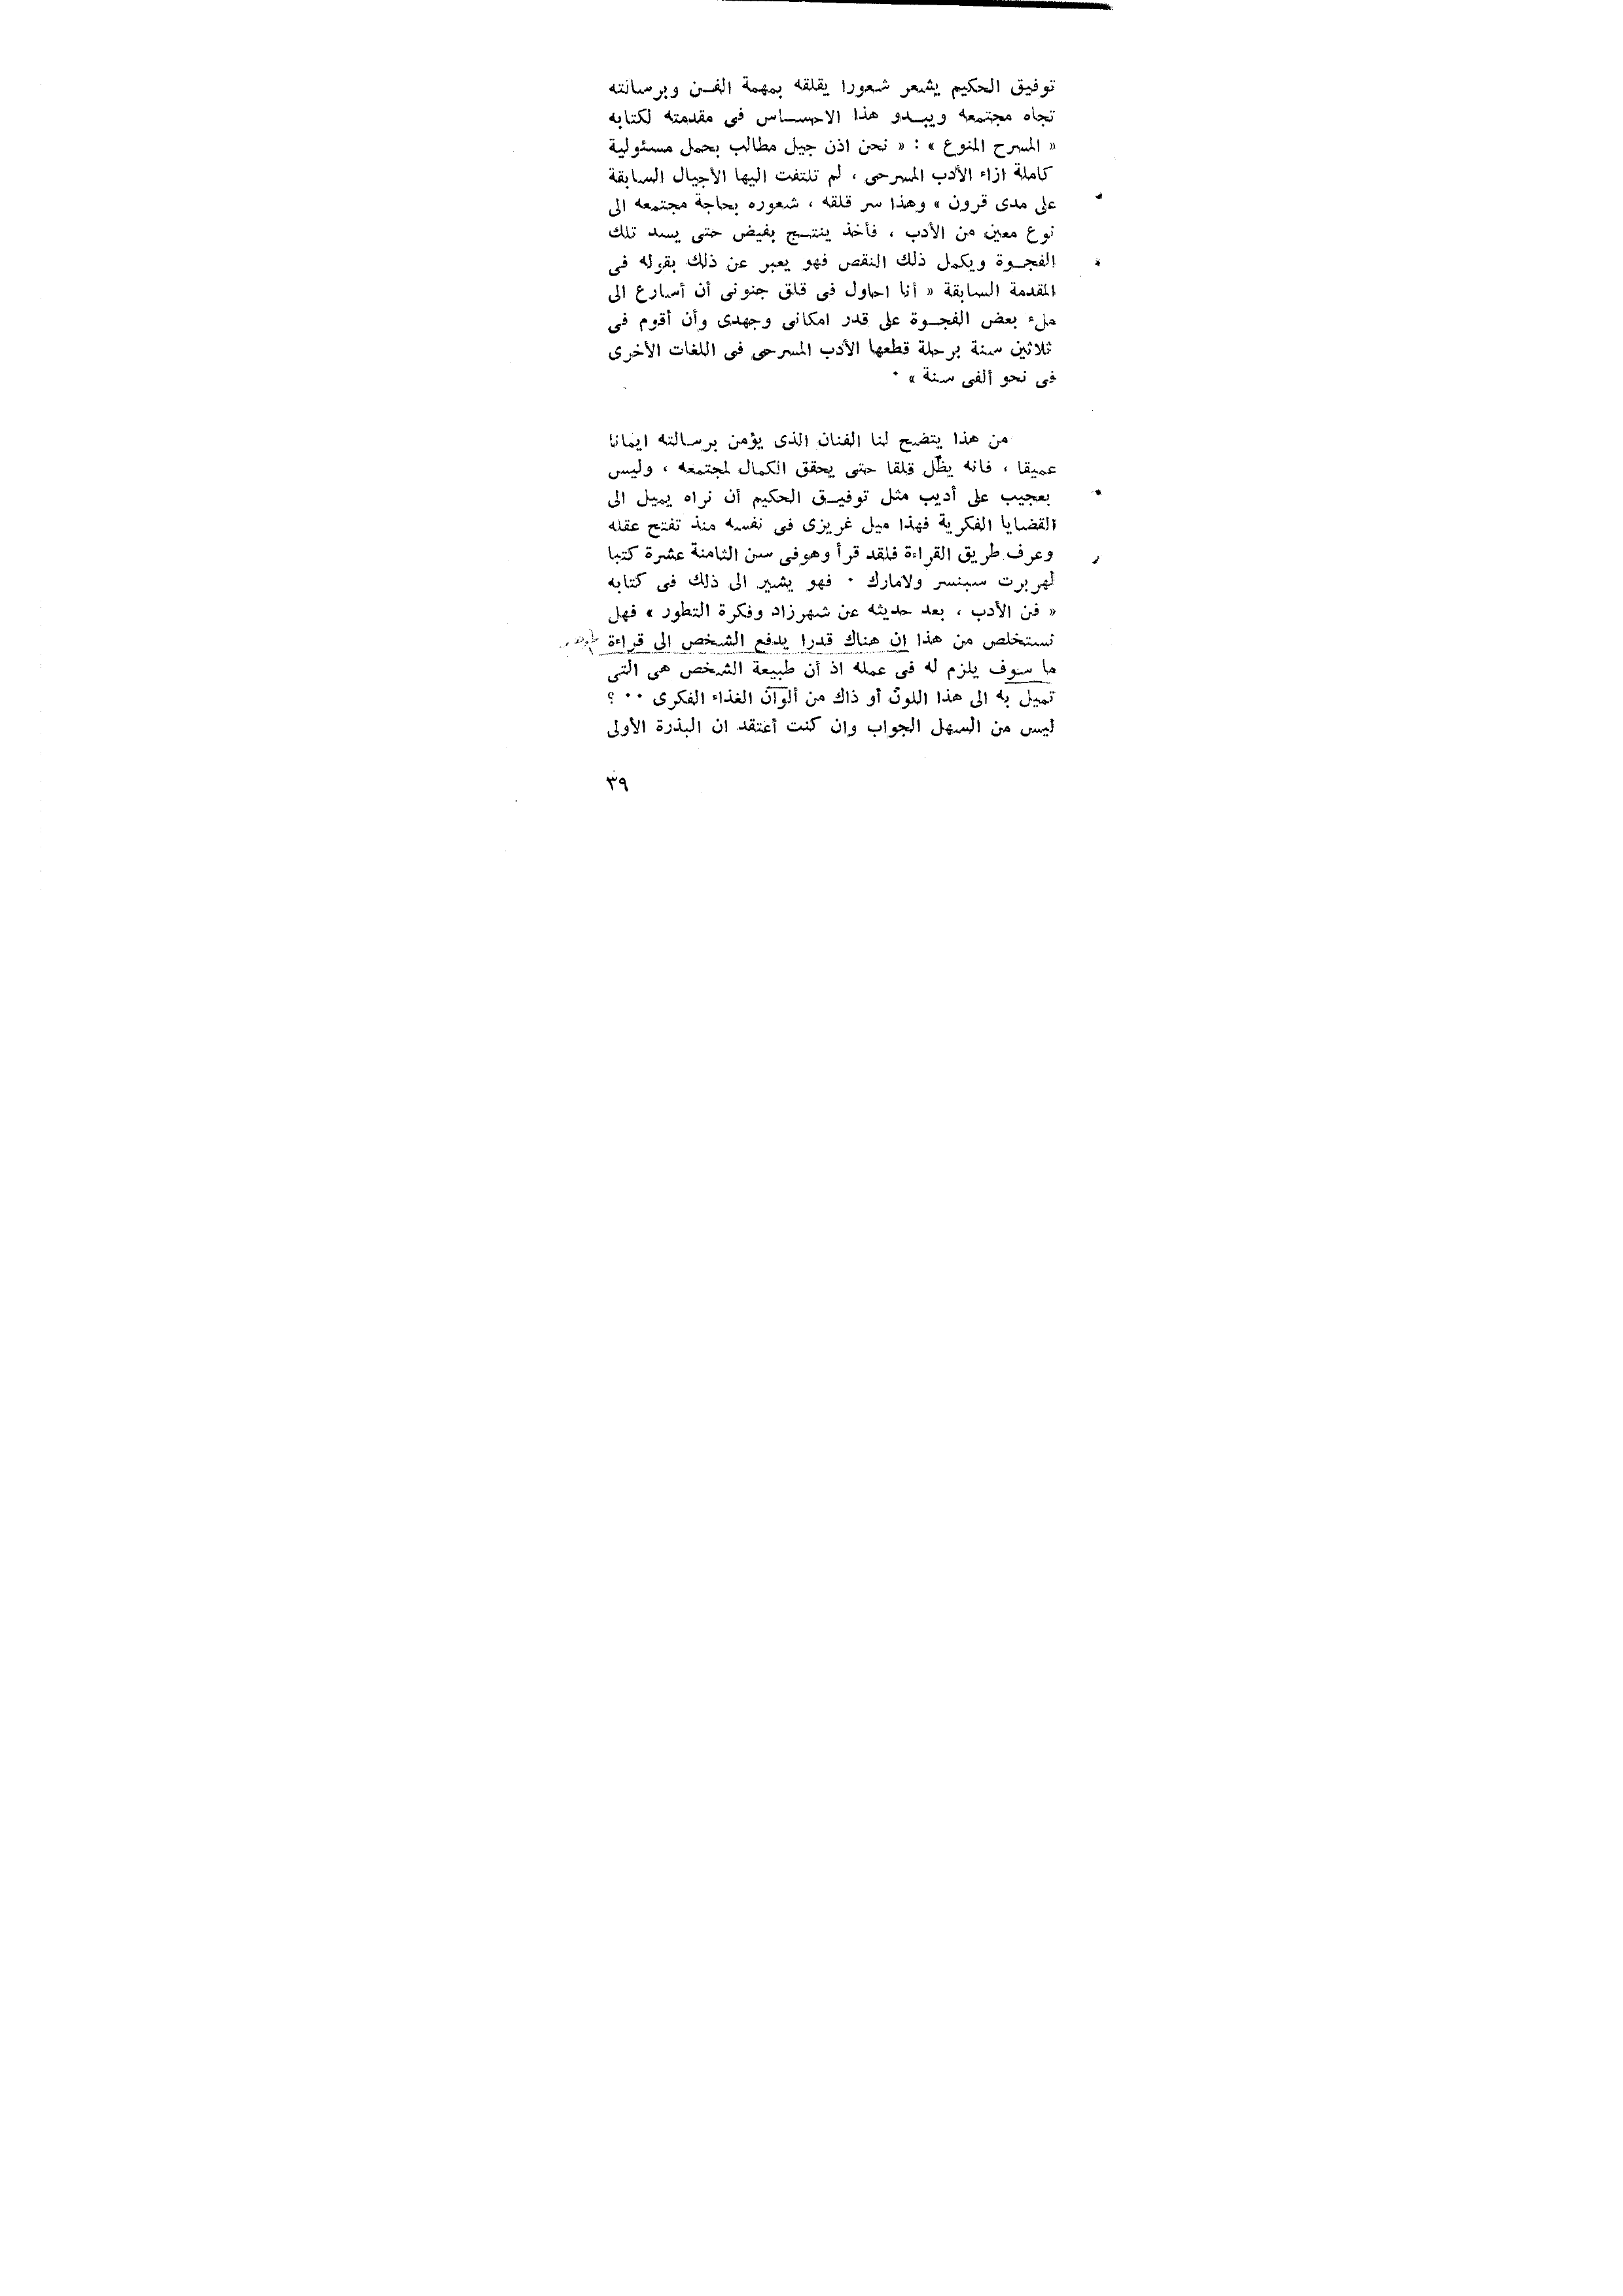 توفيق الحكيم يشعر شعورا يقلقه بمهمة الفن وبرسالته
تجاه مجتمعه ويبدو هذا الاحساس فى مقدمته لكتابه
« المسرح المنوع » : « نحن اذن جيل مطالب بحمل مسئولية
كاملة ازاء الأدب المسرحى ، لم تلتفت اليها الأجيال السابقة
على مدى قرون » وهذا سر قلقه ، شعوره بحاجة مجتمعه الى
نوع معين من الأدب ، فأخذ ينتج بفيض حتى يسد تلك
الفجوة ويكمل ذلك النقص فهو يعبر عن ذلك بقوله فى
المقدمة السابقة « أنا احاول فى قلق جنونى أن أسارع الى
ملء بعض الفجوة على قدر امكانى وجهدى وأن أقوم فى
ثلاثين سنة برحلة قطعها الأدب المسرحى فى اللغات الأخرى
فى نحو ألفى سنة » ٠
من هذا يتضح لنا الفنان الذى يؤمن برسالته ايمانا
عميقا ، فانه يظل قلقا حتى يحقق الكمال لمجتمعه ، وليس
بعجيب على أديب مثل توفيق الحكيم أن نراه يميل الى
القضايا الفكرية فهذا ميل غريزى فى نفسه منذ تفتح عقله
وعرف طريق القراءة فلقد قرأ وهوفى سن الثامنة عشرة كتبا
لهربرت سبنسر ولامارك ٠ فهو يشير الى ذلك فى كتابه
« فن الأدب ، بعد حديثه عن شهرزاد وفكرة التطور » فهل
نستخلص من هذا إن هناك قدرا يدفع الشخص الى قراءة
ما سوف يلزم له فى عمله اذ أن طبيعة الشخص هى التى
تميل به الى هذا اللون أو ذاك من ألوان الغذاء الفكرى ٠٠ ؟
ليس من السهل الجواب وان كنت أعتقد ان البذرة الأولى
٣٩